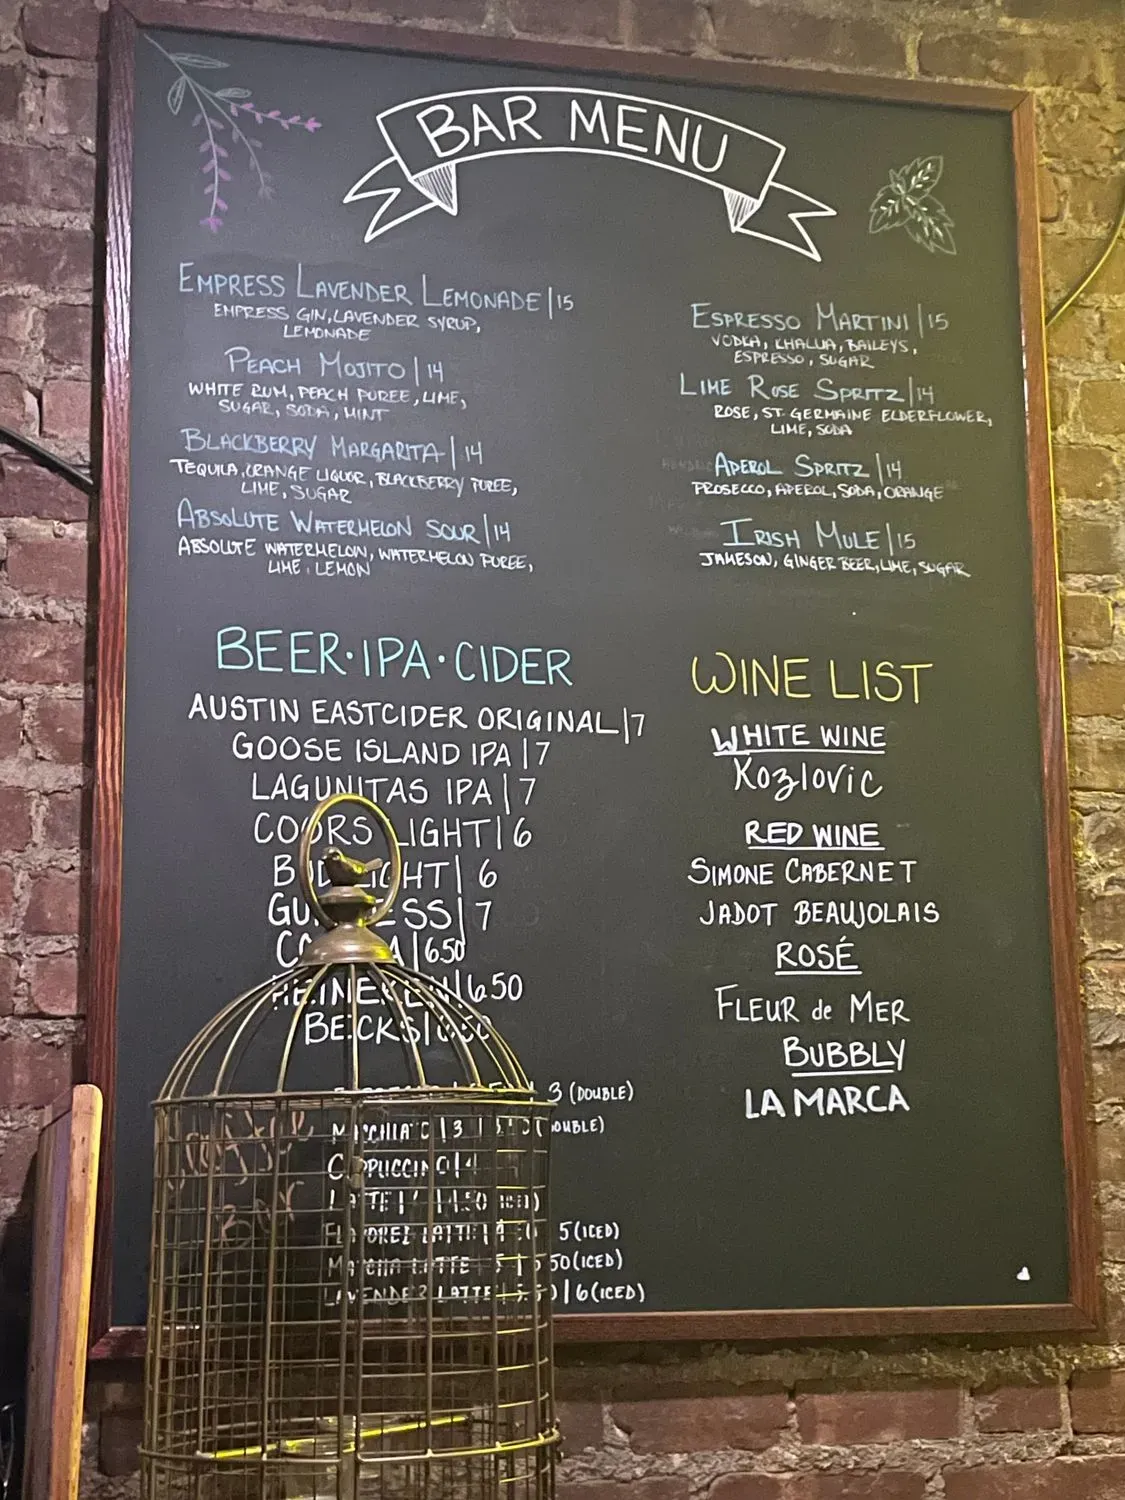 BAR MENU
EMPRESS LAVENDER LEMONADE|15
EMPRESS GIN, LAVENDER SYRUP,
LEMONADE
PEACH MOJITO|14
WHITE RUM, PEACH PUREE, LIME,
SUGAR, SODA, MINT
BLACKBERRY MARGARITA|14
TEQUILA, ORANGE LIQUOR, BLACKBERRY PUREE,
LIME, SUGAR
ABSOLUTE WATERMELON SOUR|14
ABSOLUTE WATERMELON, WATERMELON PUREE,
LIME, LEMON
ESPRESSO MARTINI|15
VODKA, KHALUA, BAILEYS,
ESPRESSO, SUGAR
LIME ROSE SPRITZ|14
ROSE, ST GERMAINE ELDERFLOWER,
LIME, SODA
APEROL SPRITZ|14
PROSECCO, APEROL, SODA, ORANGE
IRISH MULE|15
JAMESON, GINGER BEER, LIME, SUGAR
BEER·IPA·CIDER
AUSTIN EASTCIDER ORIGINAL|7
GOOSE ISLAND IPA|7
LAGUNITAS IPA|7
COORS LIGHT|6
BUD LIGHT|6
GUINNESS|7
CORONA|650
HEINEKEN|650
BECKS|650
3 (DOUBLE)
MACCHIATO|3 (DOUBLE)
CAPPUCCINO|4
LATTE|4|4.50 (ICED)
FLAVORED LATTE|4.50 5(ICED)
MATCHA LATTE 5|5 50(ICED)
LAVENDER LATTE|5.50|6(ICED)
WINE LIST
WHITE WINE
Kozlovic
RED WINE
SIMONE CABERNET
JADOT BEAUJOLAIS
ROSÉ
FLEUR de MER
BUBBLY
LA MARCA